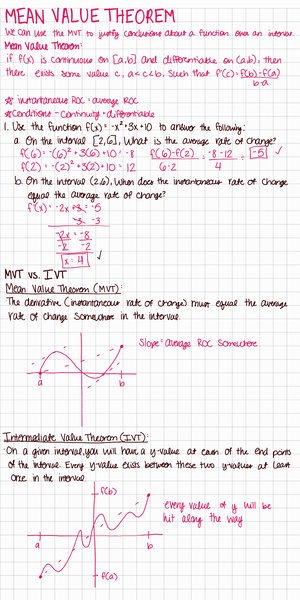 MEAN VALUE THEOREM
We can use the MVT to justify conclusions about a function over an interval.
Mean Value Theorem:
if f(x) is continuous on [a,b] and differentiable on (a,b), then
there exists some value c, a<c<b, such that f'(c)=f(b)-f(a)
b-a
☆ instantaneous ROC = average ROC
☆Conditions - Continuity + differentiable
1. Use the function f(x) = -x²+3x+10 to answer the following:
a. On the interval [2,6], what is the average rate of change?
f(6) = -(6)² + 3(6)+10 = -8 f(6)-f(2) = -8-12 = -5 ✓
f(2) = -(2)² +3(2)+10 = 12 6-2 4
b. On the interval (2,6), when does the instantaneous rate of change
equal the average rate of change?
f'(x) = -2x +3 = -5
-3 -3
-2x = -8
-2 -2
x = 4 ✓
MVT vs. IVT
Mean Value Theorem (MVT):
The derivative (instantaneous rate of change) must equal the average
rate of change somewhere in the interval.
slope = average ROC somewhere
a b
Intermediate Value Theorem (IVT):
On a given interval, you will have a y-value at each of the end points
of the interval. Every y-value exists between these two y-values at least
once in the interval.
f(b)
every value of y will be
hit along the way
a b
f(a)